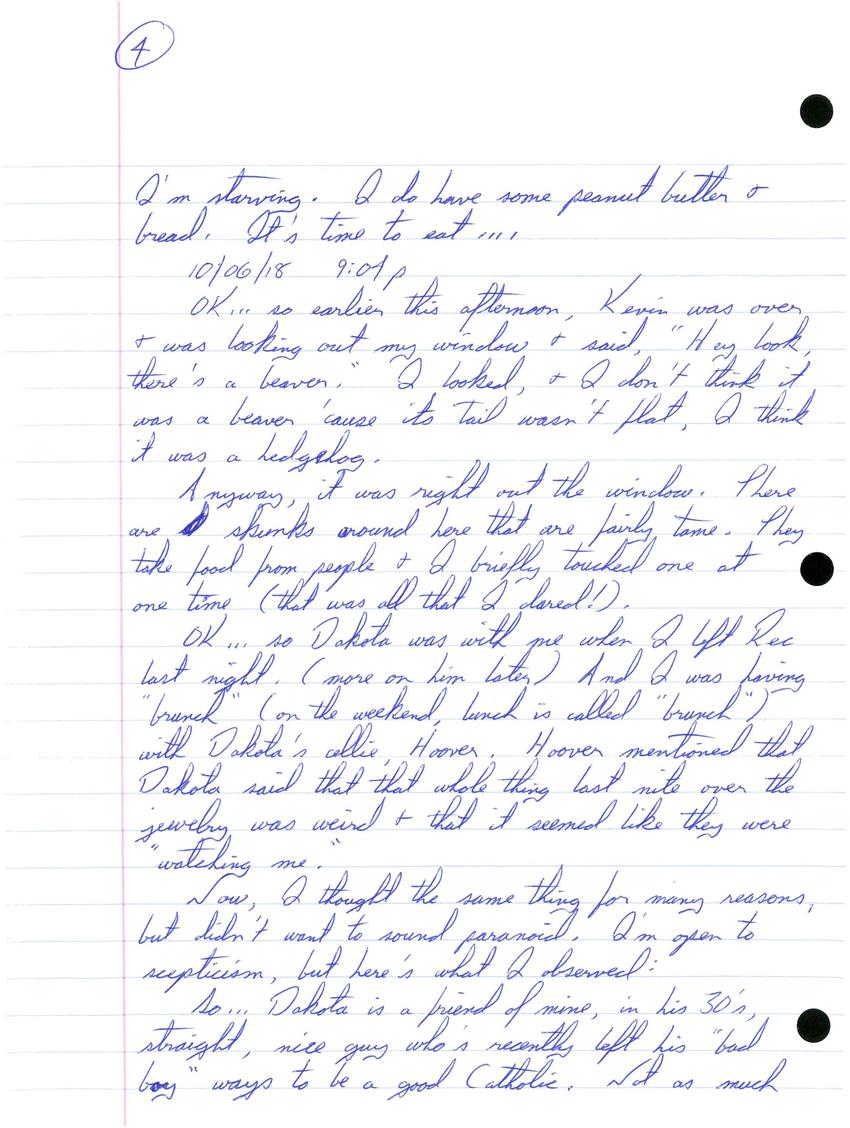 4
I'm starving. I do have some peanut butter &
bread. It's time to eat....
10/06/18 9:01 p
OK... so earlier this afternoon, Kevin was over
& was looking out my window & said, "Hey look,
there's a beaver." I looked, & I don't think it
was a beaver 'cause its tail wasn't flat, I think
it was a hedgehog.
Anyway, it was right out the window. There
are skunks around here that are fairly tame. They
take food from people & I briefly touched one at
one time (that was all that I dared!).
OK... so Dakota was with me when I left Rec
last night. (more on him later) And I was having
"brunch" (on the weekend, lunch is called "brunch")
with Dakota's cellie, Hoover. Hoover mentioned that
Dakota said that that whole thing last nite over the
jewelry was weird & that it seemed like they were
"watching me."
Now, I thought the same thing for many reasons,
but didn't want to sound paranoid. I'm open to
scepticism, but here's what I observed:
So... Dakota is a friend of mine, in his 30's,
straight, nice guy who's recently left his "bad
boy" ways to be a good Catholic. Not as much